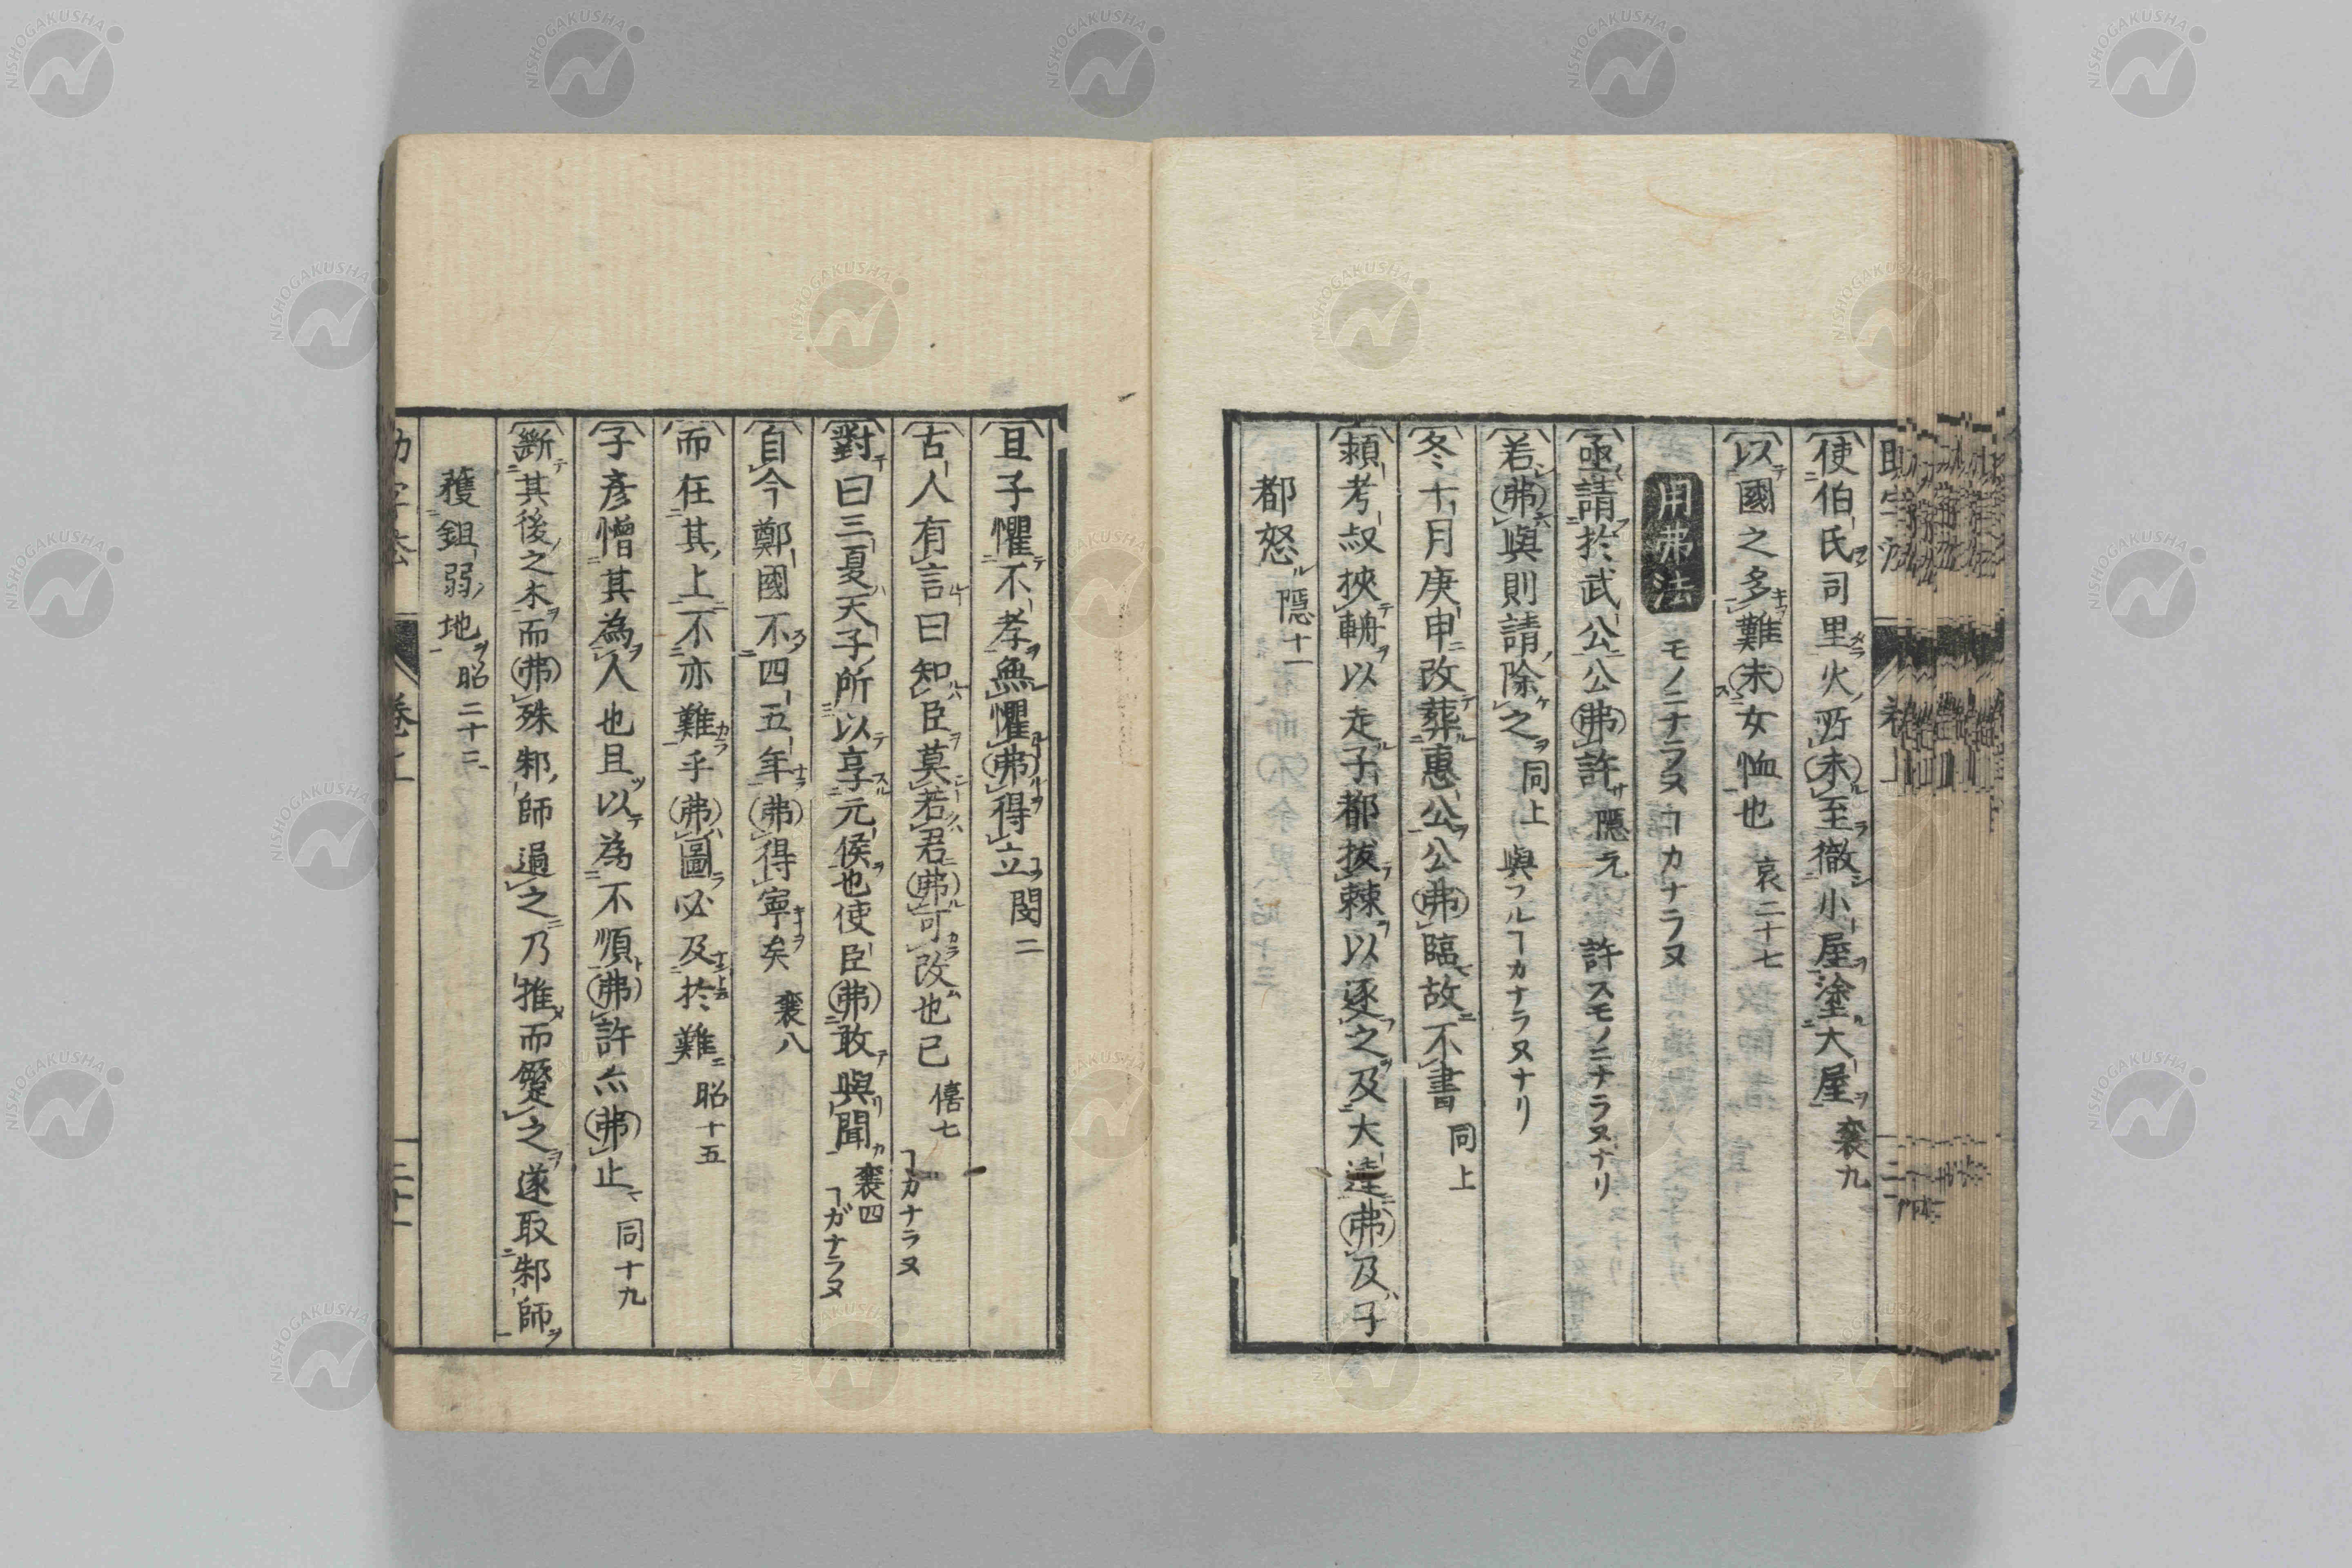 使伯氏司里火所未至徹小屋塗大屋 襄九
以國之多難未女恤也 哀二十七
用弗法 モノニナラヌ ヿカナラヌ
亟請於武公公弗許 隱元 許スモノニナラヌナリ
若弗與則請除之 同上 與フルヿカナラヌナリ
冬十月庚申改葬惠公公弗臨故不書 同上
潁考叔挾輈以走子都拔棘以逐之及大逵弗及子
都怒 隱十一
且子懼不孝無懼弗得立 閔二
古人有言曰知臣莫若君弗可改也已 僖七 ヿカナラヌ
對曰三夏天子所以享元侯也使臣弗敢與聞 襄四 ヿガナラヌ
自今鄭國不四五年弗得寧矣 襄八
而在其上不亦難乎弗圖必及於難 昭十五
子彥憎其為人也且以為不順弗許亦弗止 同十九
斷其後之木而弗殊邾師過之乃推而蹷之遂取邾師
獲鉏弱地 昭二十三
NISHOGAKUSHA